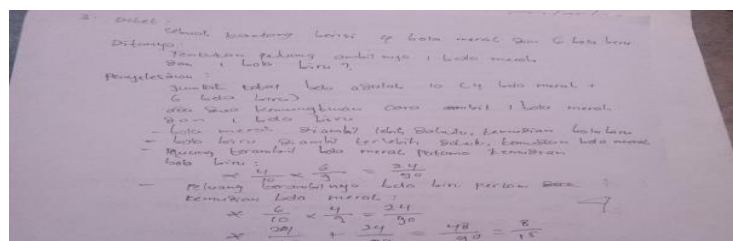 3. Diket :
Sebuah kantong berisi 4 bola merah dan 6 bola biru
Ditanya :
Tentukan peluang ambilnya 1 bola merah
dan 1 bola biru ?
Penyelesaian :
Jumlah total bola adalah 10 (4 bola merah +
6 bola biru)
ada dua kemungkinan cara ambil 1 bola merah
dan 1 bola biru
- bola merah diambil lebih dahulu, kemudian bola biru
- bola biru diambil terlebih dahulu, kemudian bola merah
- Peluang terambil bola merah pertama kemudian
bola biru :
× 4/10 × 6/9 = 24/90
- Peluang terambilnya bola biru pertama
kemudian bola merah :
× 6/10 × 4/9 = 24/90
× 24/90 + 24/90 = 48/90 = 8/15